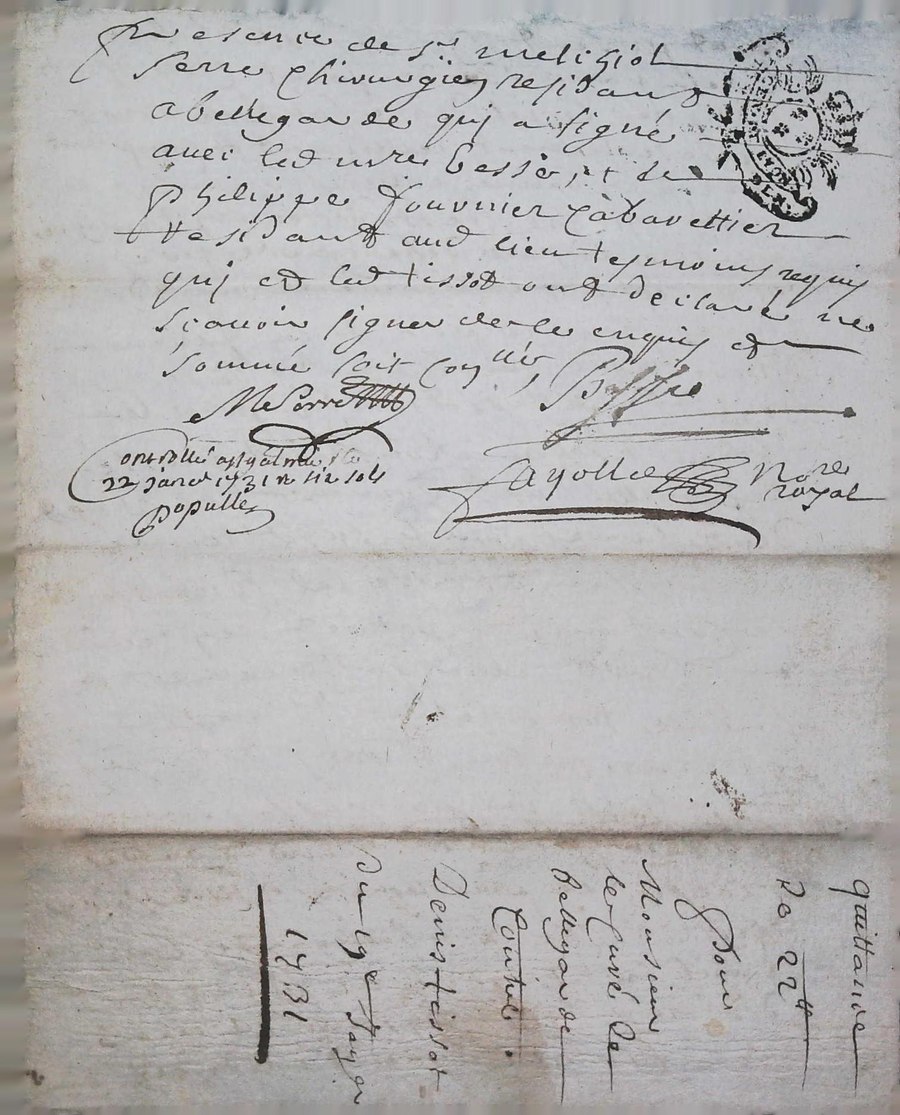 presence de sr melchiol
serre Chirurgien residant
a bellegarde qui a signé
avec led sieur besse, et de
Philippe fournier Cabarettier
residant aud lieu tesmoins requis
qui et led tissot ont declaré ne
scavoir signer de ce enquis et
sommé soit con
MeSerre
Besse
Controllé a le
22 janv 1731 r six sols
Populle
Fayolle Nore
royal
quittance
De 22tt
Pour
Monsieur
le Curé De
bellegarde
Contre
Denis tissot
Du 19e Janvr
1731